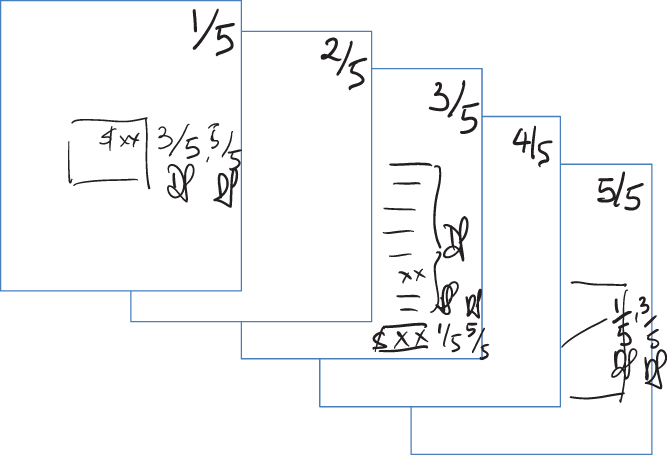 1/5
$xx 3/5, 5/5
DP DP
2/5
3/5
DP
xx
DP DP
$xx 1/5 5/5
4/5
5/5
1/5, 3/5
DP DP